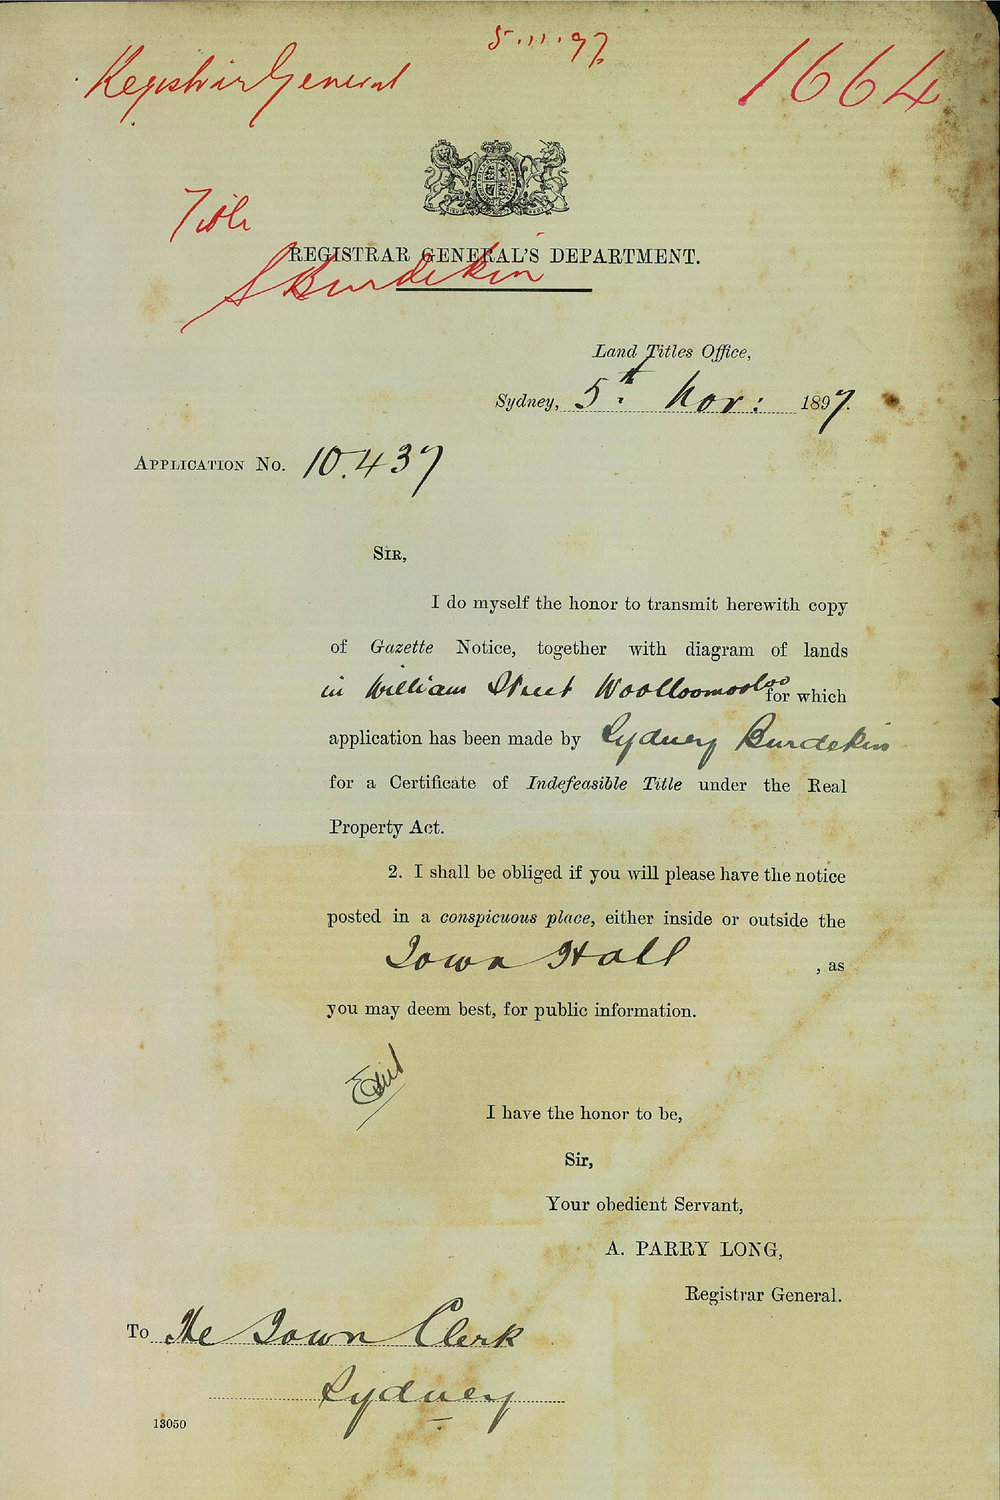 5.11.97
Registrar General
1664
Title
S Burdekin
REGISTRAR GENERAL'S DEPARTMENT.
Land Titles Office,
Sydney, 5th Nov: 1897.
APPLICATION No. 10.437
SIR,
I do myself the honor to transmit herewith copy
of Gazette Notice, together with diagram of lands
in William Street Woolloomooloo for which
application has been made by Sydney Burdekin
for a Certificate of Indefeasible Title under the Real
Property Act.
2. I shall be obliged if you will please have the notice
posted in a conspicuous place, either inside or outside the
Town Hall , as
you may deem best, for public information.
I have the honor to be,
Sir,
Your obedient Servant,
A. PARRY LONG,
Registrar General.
To The Town Clerk
Sydney
13050